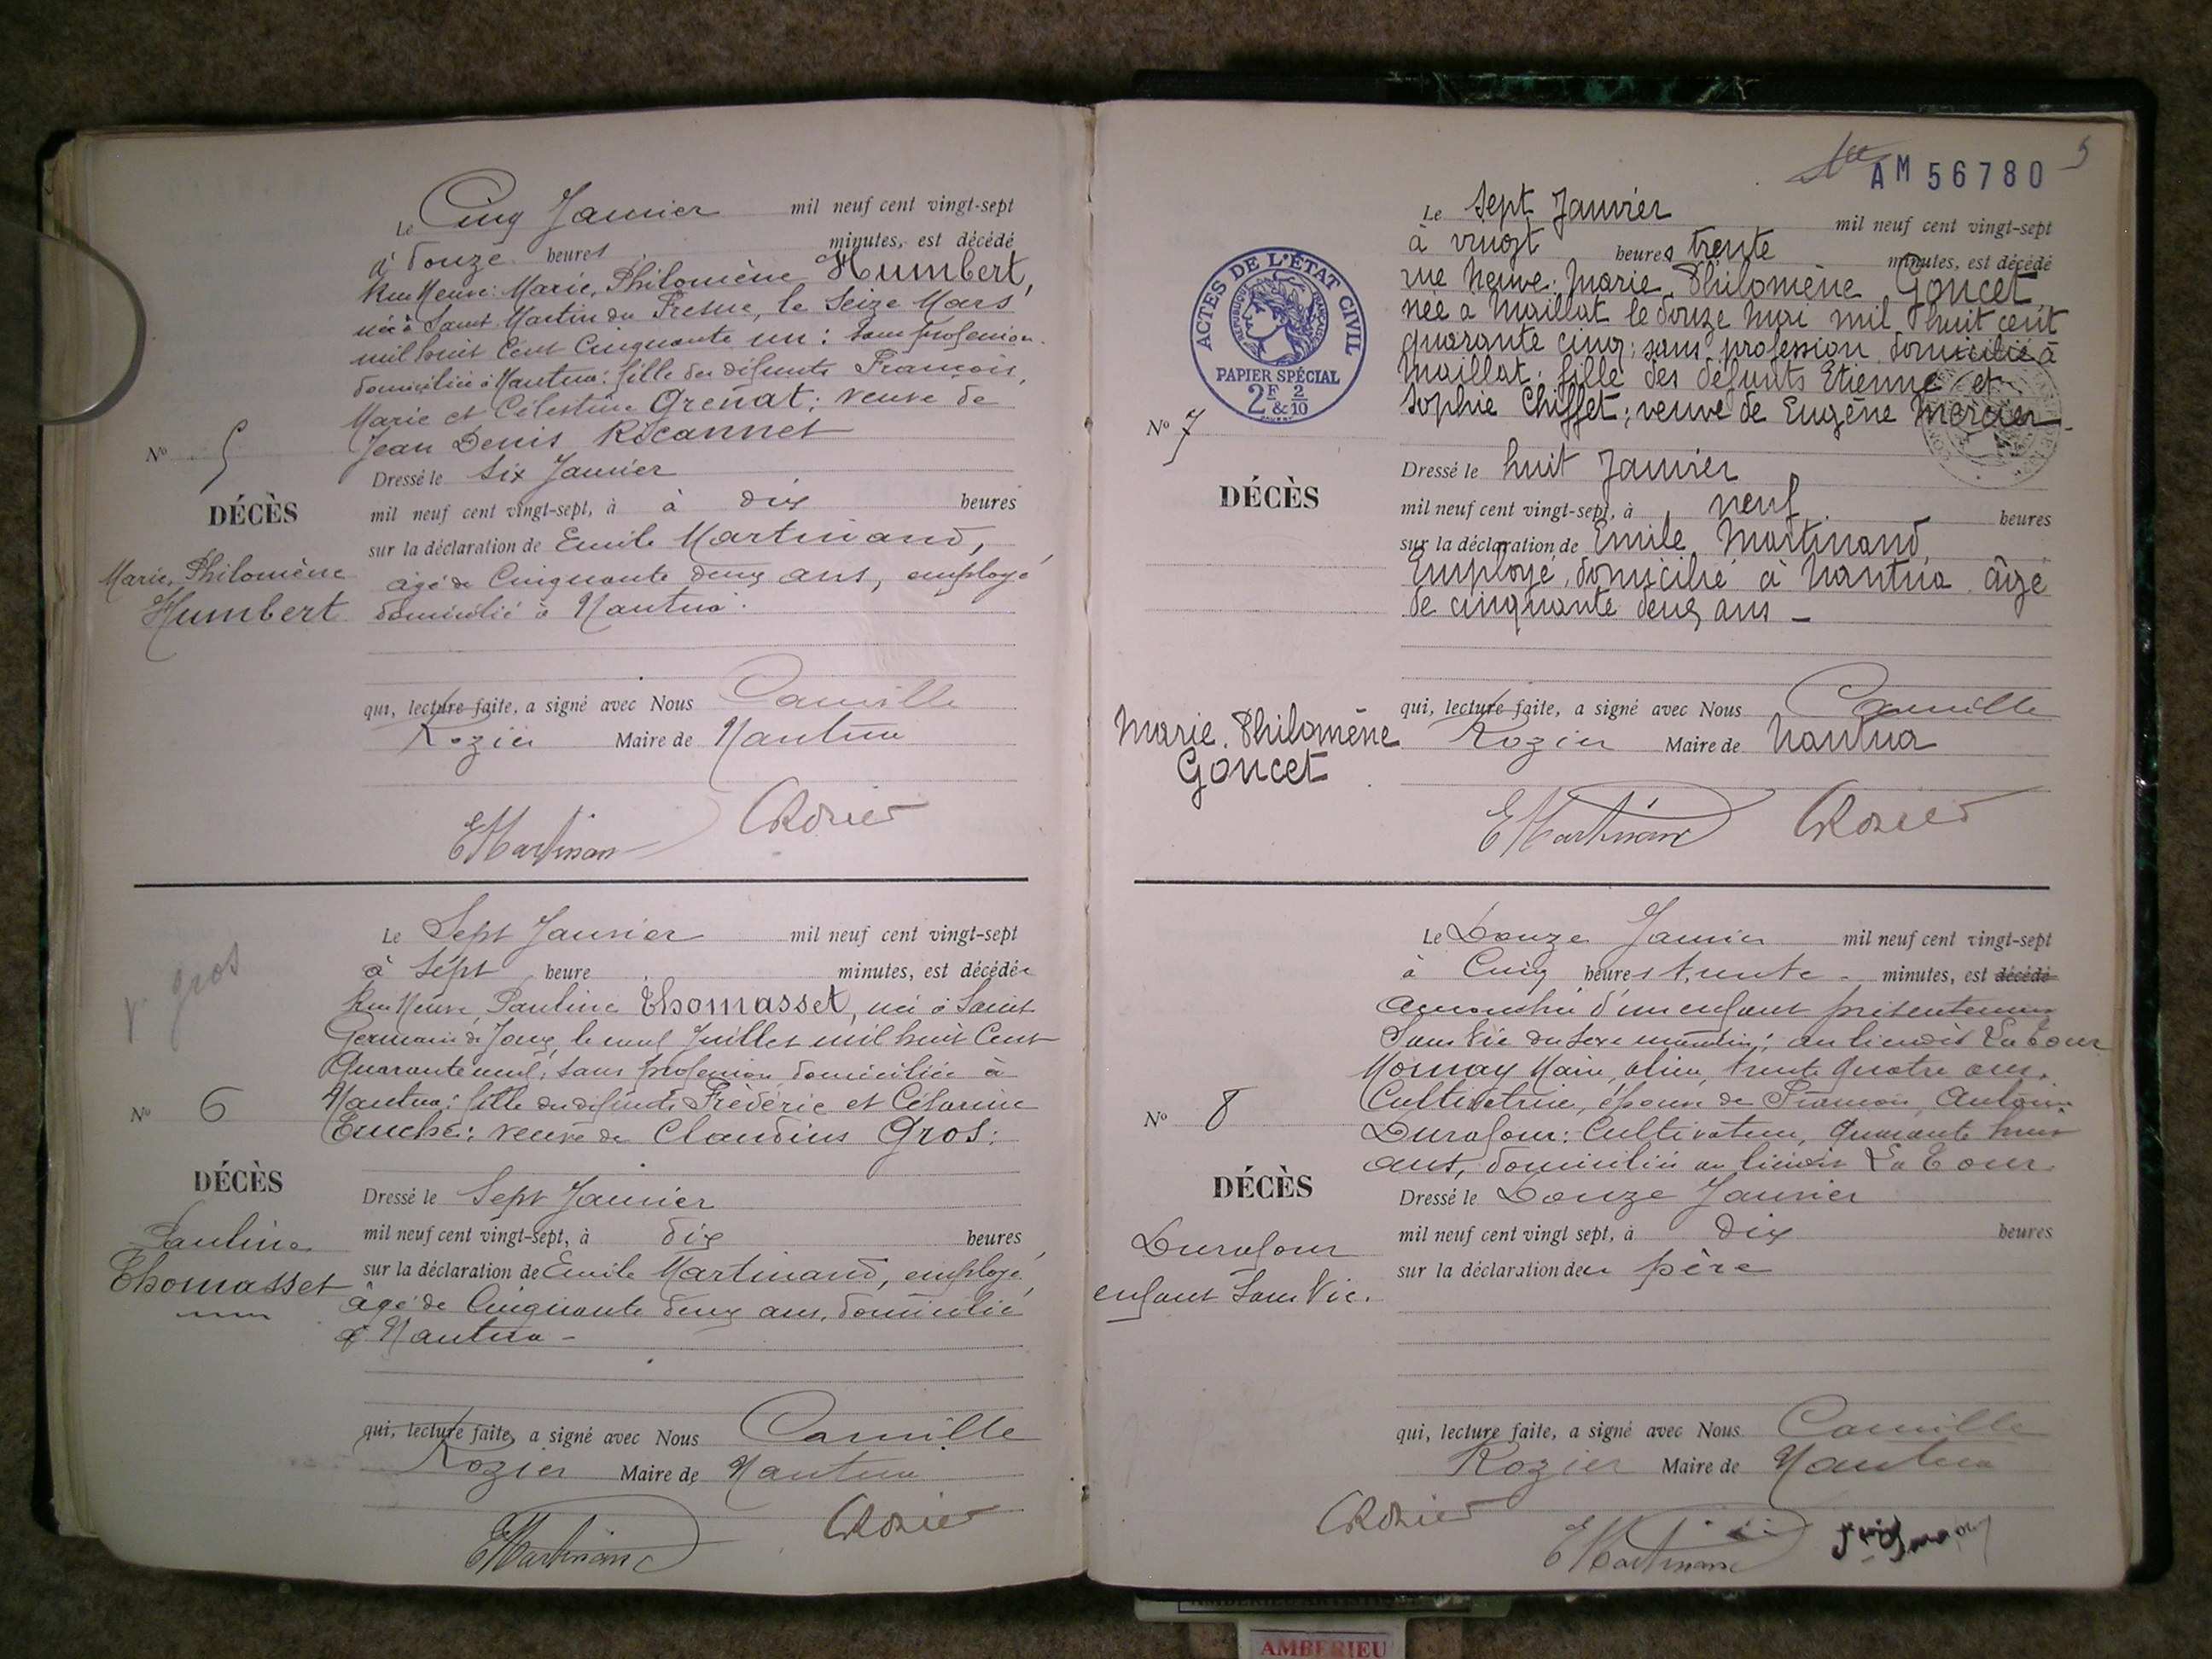 Le Cinq Janvier mil neuf cent vingt-sept
à douze heures minutes, est décédé
Rue Neuve: Marie, Philomène Humbert,
née à Saint Martin du Fresne, le Seize Mars
mil huit Cent Cinquante un: sans profession.
domiciliée à Nantua: fille des défunts François,
Marie et Célestine Grenat; veuve de
Jean Denis Ricannet
No 5
Dressé le Six Janvier
DÉCÈS
mil neuf cent vingt-sept, à à dix heures
sur la déclaration de Emile Martinand,
Marie, Philomène
Humbert
âgé de Cinquante deux ans, employé
domicilié à Nantua.
qui, lecture faite, a signé avec Nous Camille
Rozier Maire de Nantua
EMartinand CRozier
Le Sept Janvier mil neuf cent vingt-sept
à Sept heure minutes, est décédée
Rue Neuve, Pauline Thomasset, née à Saint
Germain de Joux, le neuf Juillet mil huit Cent
Quarante neuf; sans profession domiciliée à
Nantua: fille des défunts Frédéric et Césarine
Tuche: veuve de Claudius Gros:
v. gros
No 6
DÉCÈS
Pauline
Thomasset
Dressé le Sept Janvier
mil neuf cent vingt-sept, à dix heures
sur la déclaration de Emile Martinand, employé
âgé de Cinquante deux ans, domicilié
à Nantua -
qui, lecture faite, a signé avec Nous Camille
Rozier Maire de Nantua
EMartinand CRozier
AM 56780 5
Le Sept Janvier mil neuf cent vingt-sept
à vingt heures trente minutes, est décédé
rue Neuve, Marie Philomène Goncet
née à Maillat le douze Mai mil huit cent
quarante cinq; sans profession domicilié à
Maillat; fille des défunts Etienne et
Sophie Chiffet; veuve de Eugène Mercier.
ACTES DE L'ÉTAT CIVIL
RÉPUBLIQUE FRANÇAISE
PAPIER SPÉCIAL
2F & 2/10
No 7
DÉCÈS
Dressé le huit Janvier
mil neuf cent vingt-sept, à neuf heures
sur la déclaration de Emile Martinand,
Employé, domicilié à Nantua âgé
de cinquante deux ans -
Marie, Philomène
Goncet
qui, lecture faite, a signé avec Nous Camille
Rozier Maire de Nantua
EMartinand CRozier
Le Douze Janvier mil neuf cent vingt-sept
à Cinq heures trente minutes, est décédé
accouchée d'un enfant présentement
Sans Vie du sexe masculin; au lieudit La Tour
Mornay Marie, trente quatre ans.
Cultivatrice, épouse de François, Antoine
Durafour: Cultivateur, Quarante huit
ans, domiciliés au lieudit La Tour.
No 8
DÉCÈS
Durafour
enfant Sans Vie.
Dressé le Douze Janvier
mil neuf cent vingt sept, à dix heures
sur la déclaration de père
qui, lecture faite, a signé avec Nous Camille
Rozier Maire de Nantua
CRozier
EMartinand
AMBERIEU